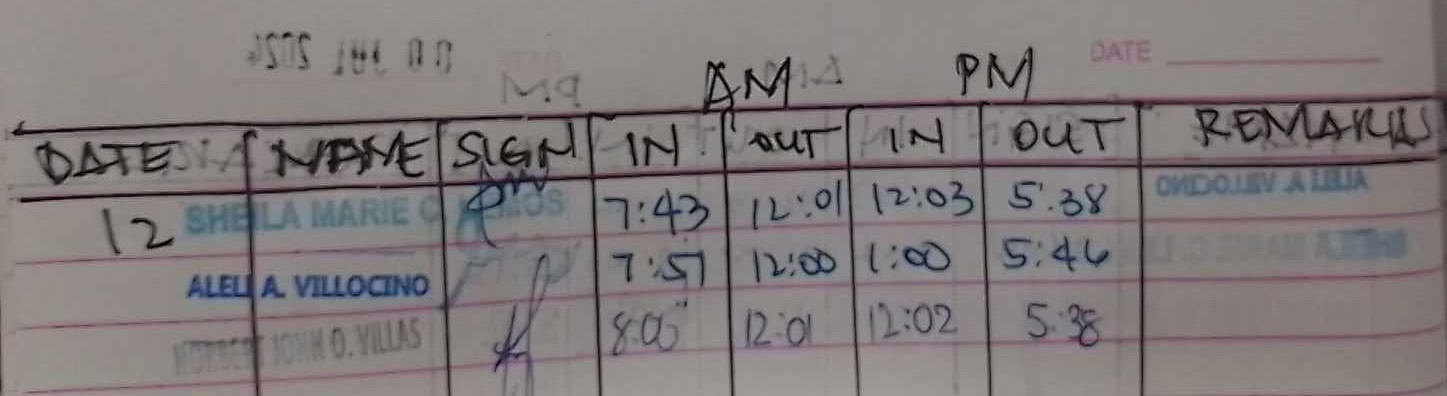 DATE
AM PM
DATE NAME SIGN IN OUT IN OUT REMARKS
12 SHEILA MARIE 7:43 12:01 12:03 5:38
ALELI A. VILLOCINO 7:51 12:00 1:00 5:46
NORBERT JOHN O. VILLAS 8:00 12:01 12:02 5:38